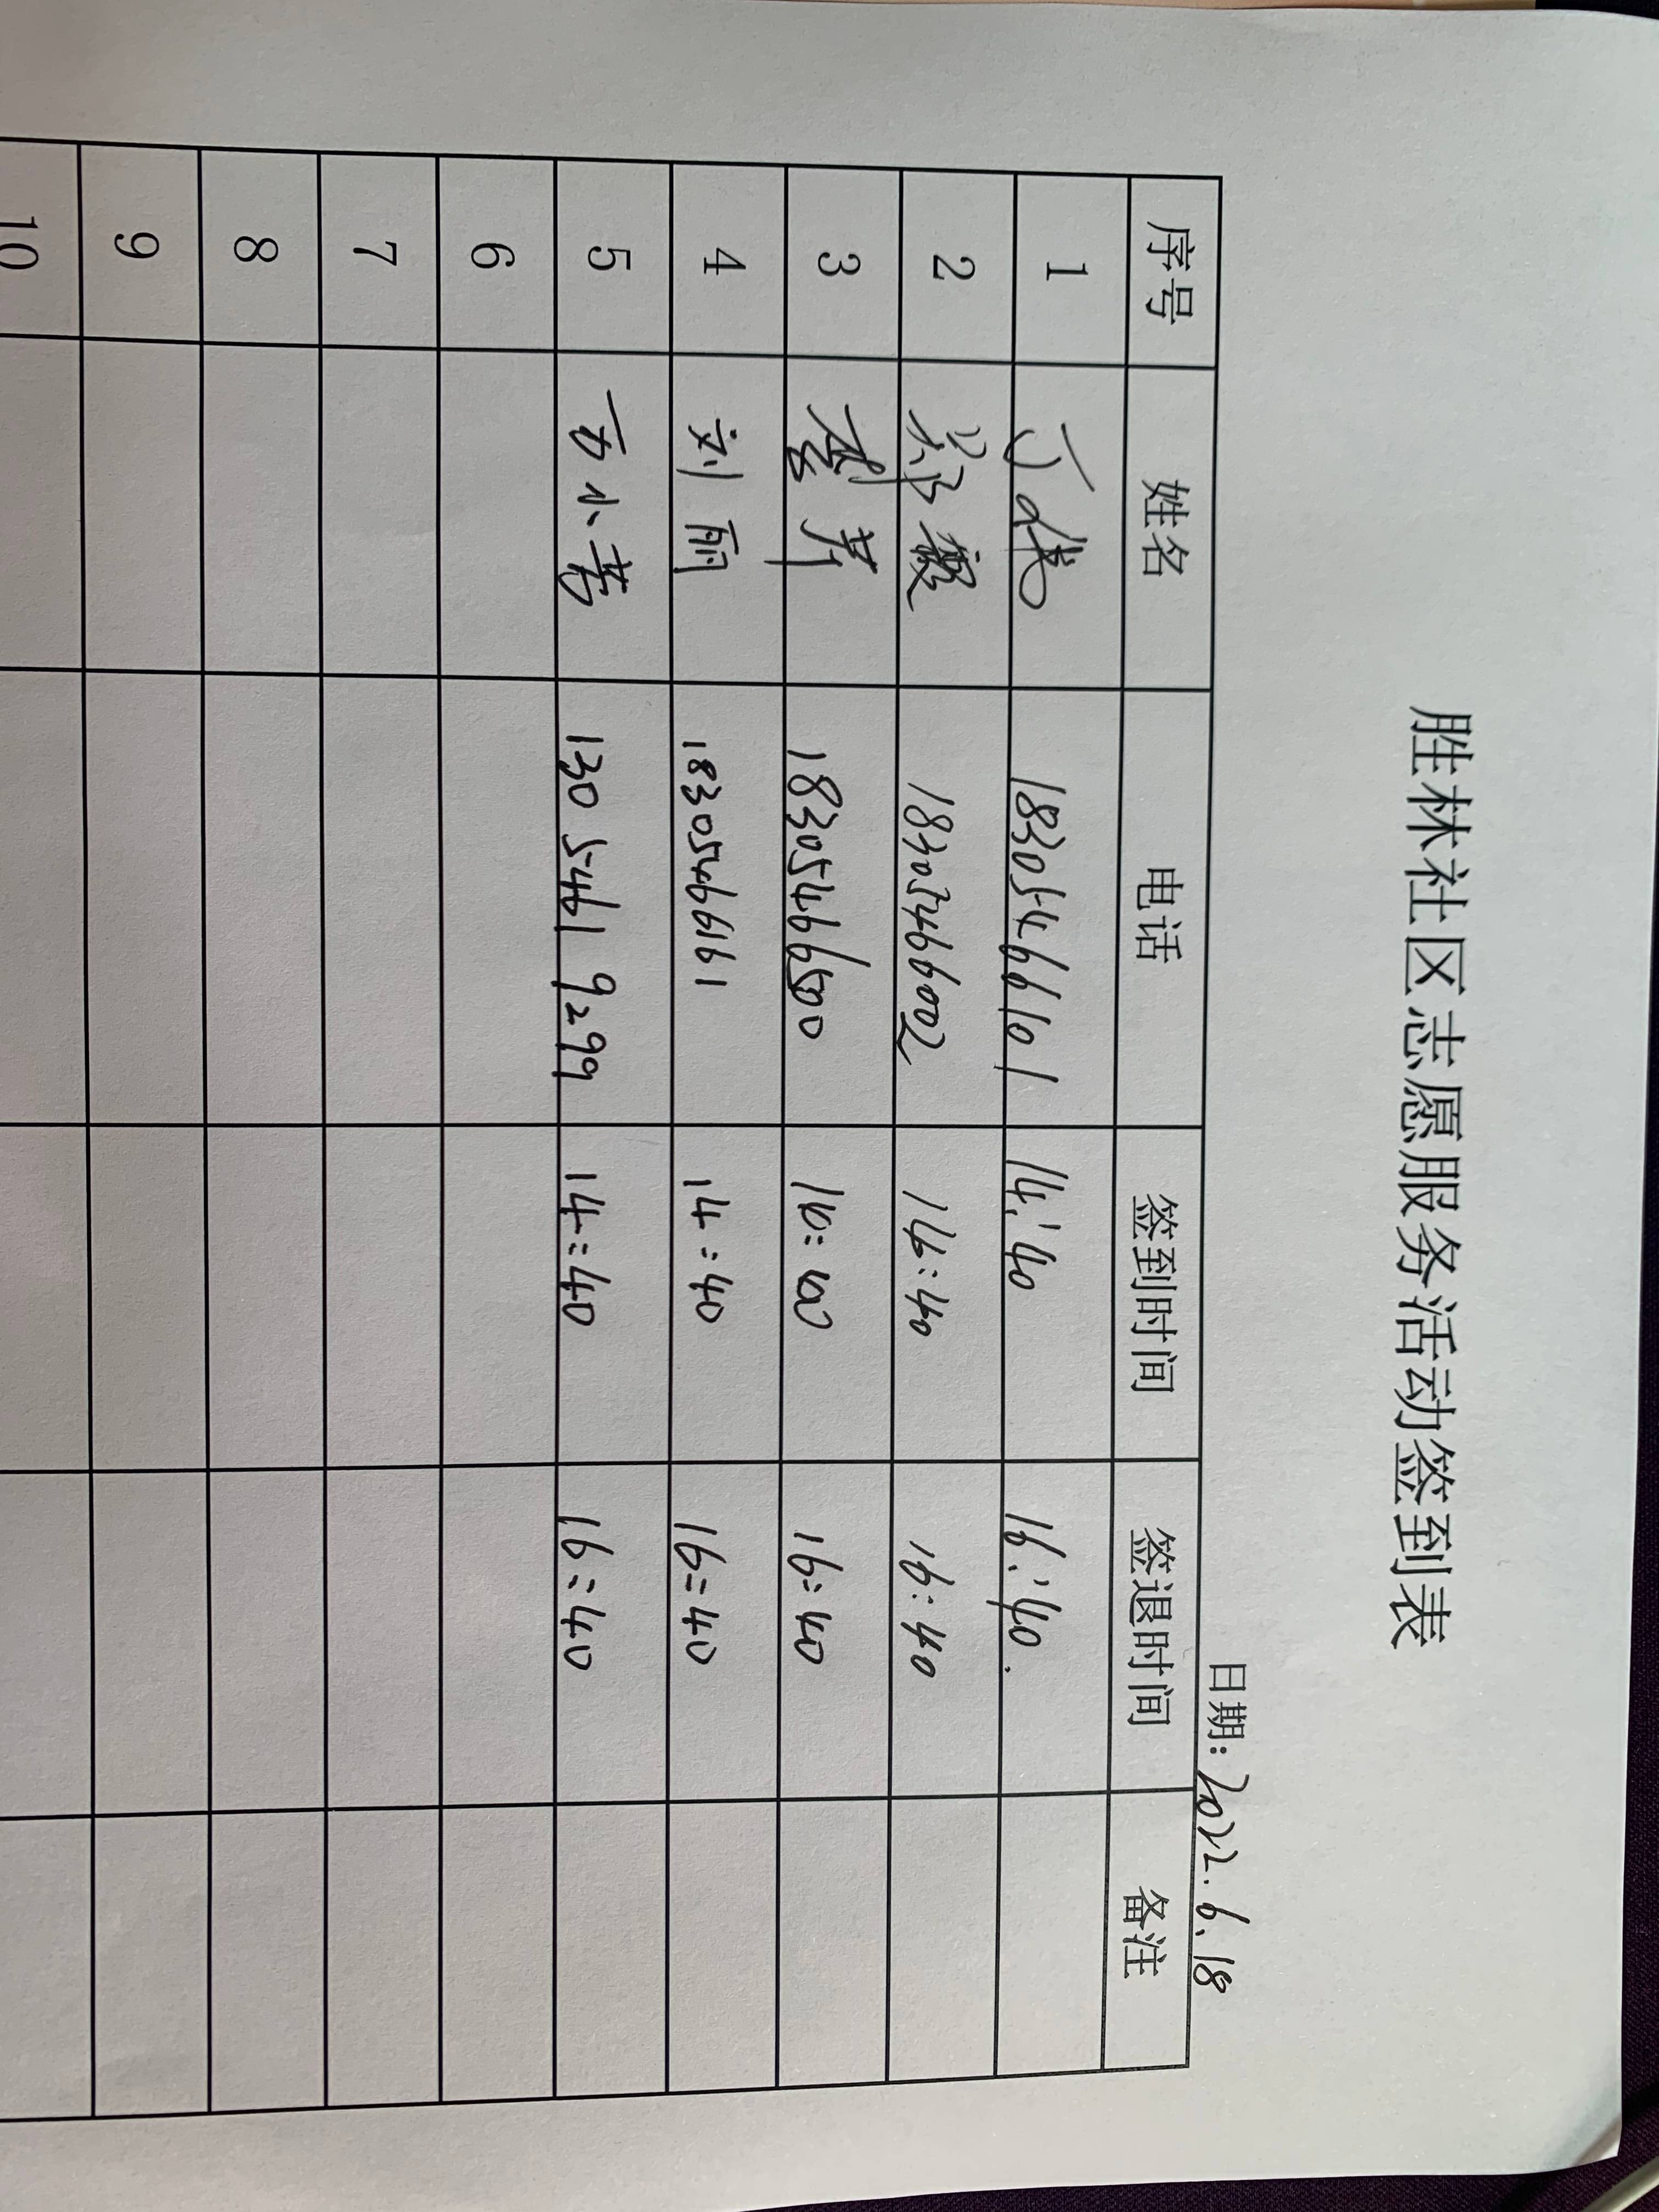 胜林社区志愿服务活动签到表
日期：2022.6.18
序号 姓名 电话 签到时间 签退时间 备注
1 丁 18305466101 14:40 16:40.
2 郑薇 18305466002 14:40 16:40
3 李芳 18305466500 16:40
4 刘丽 18305466161 14:40 16:40
5 小芳 13054619299 14:40 16:40
6
7
8
9
10